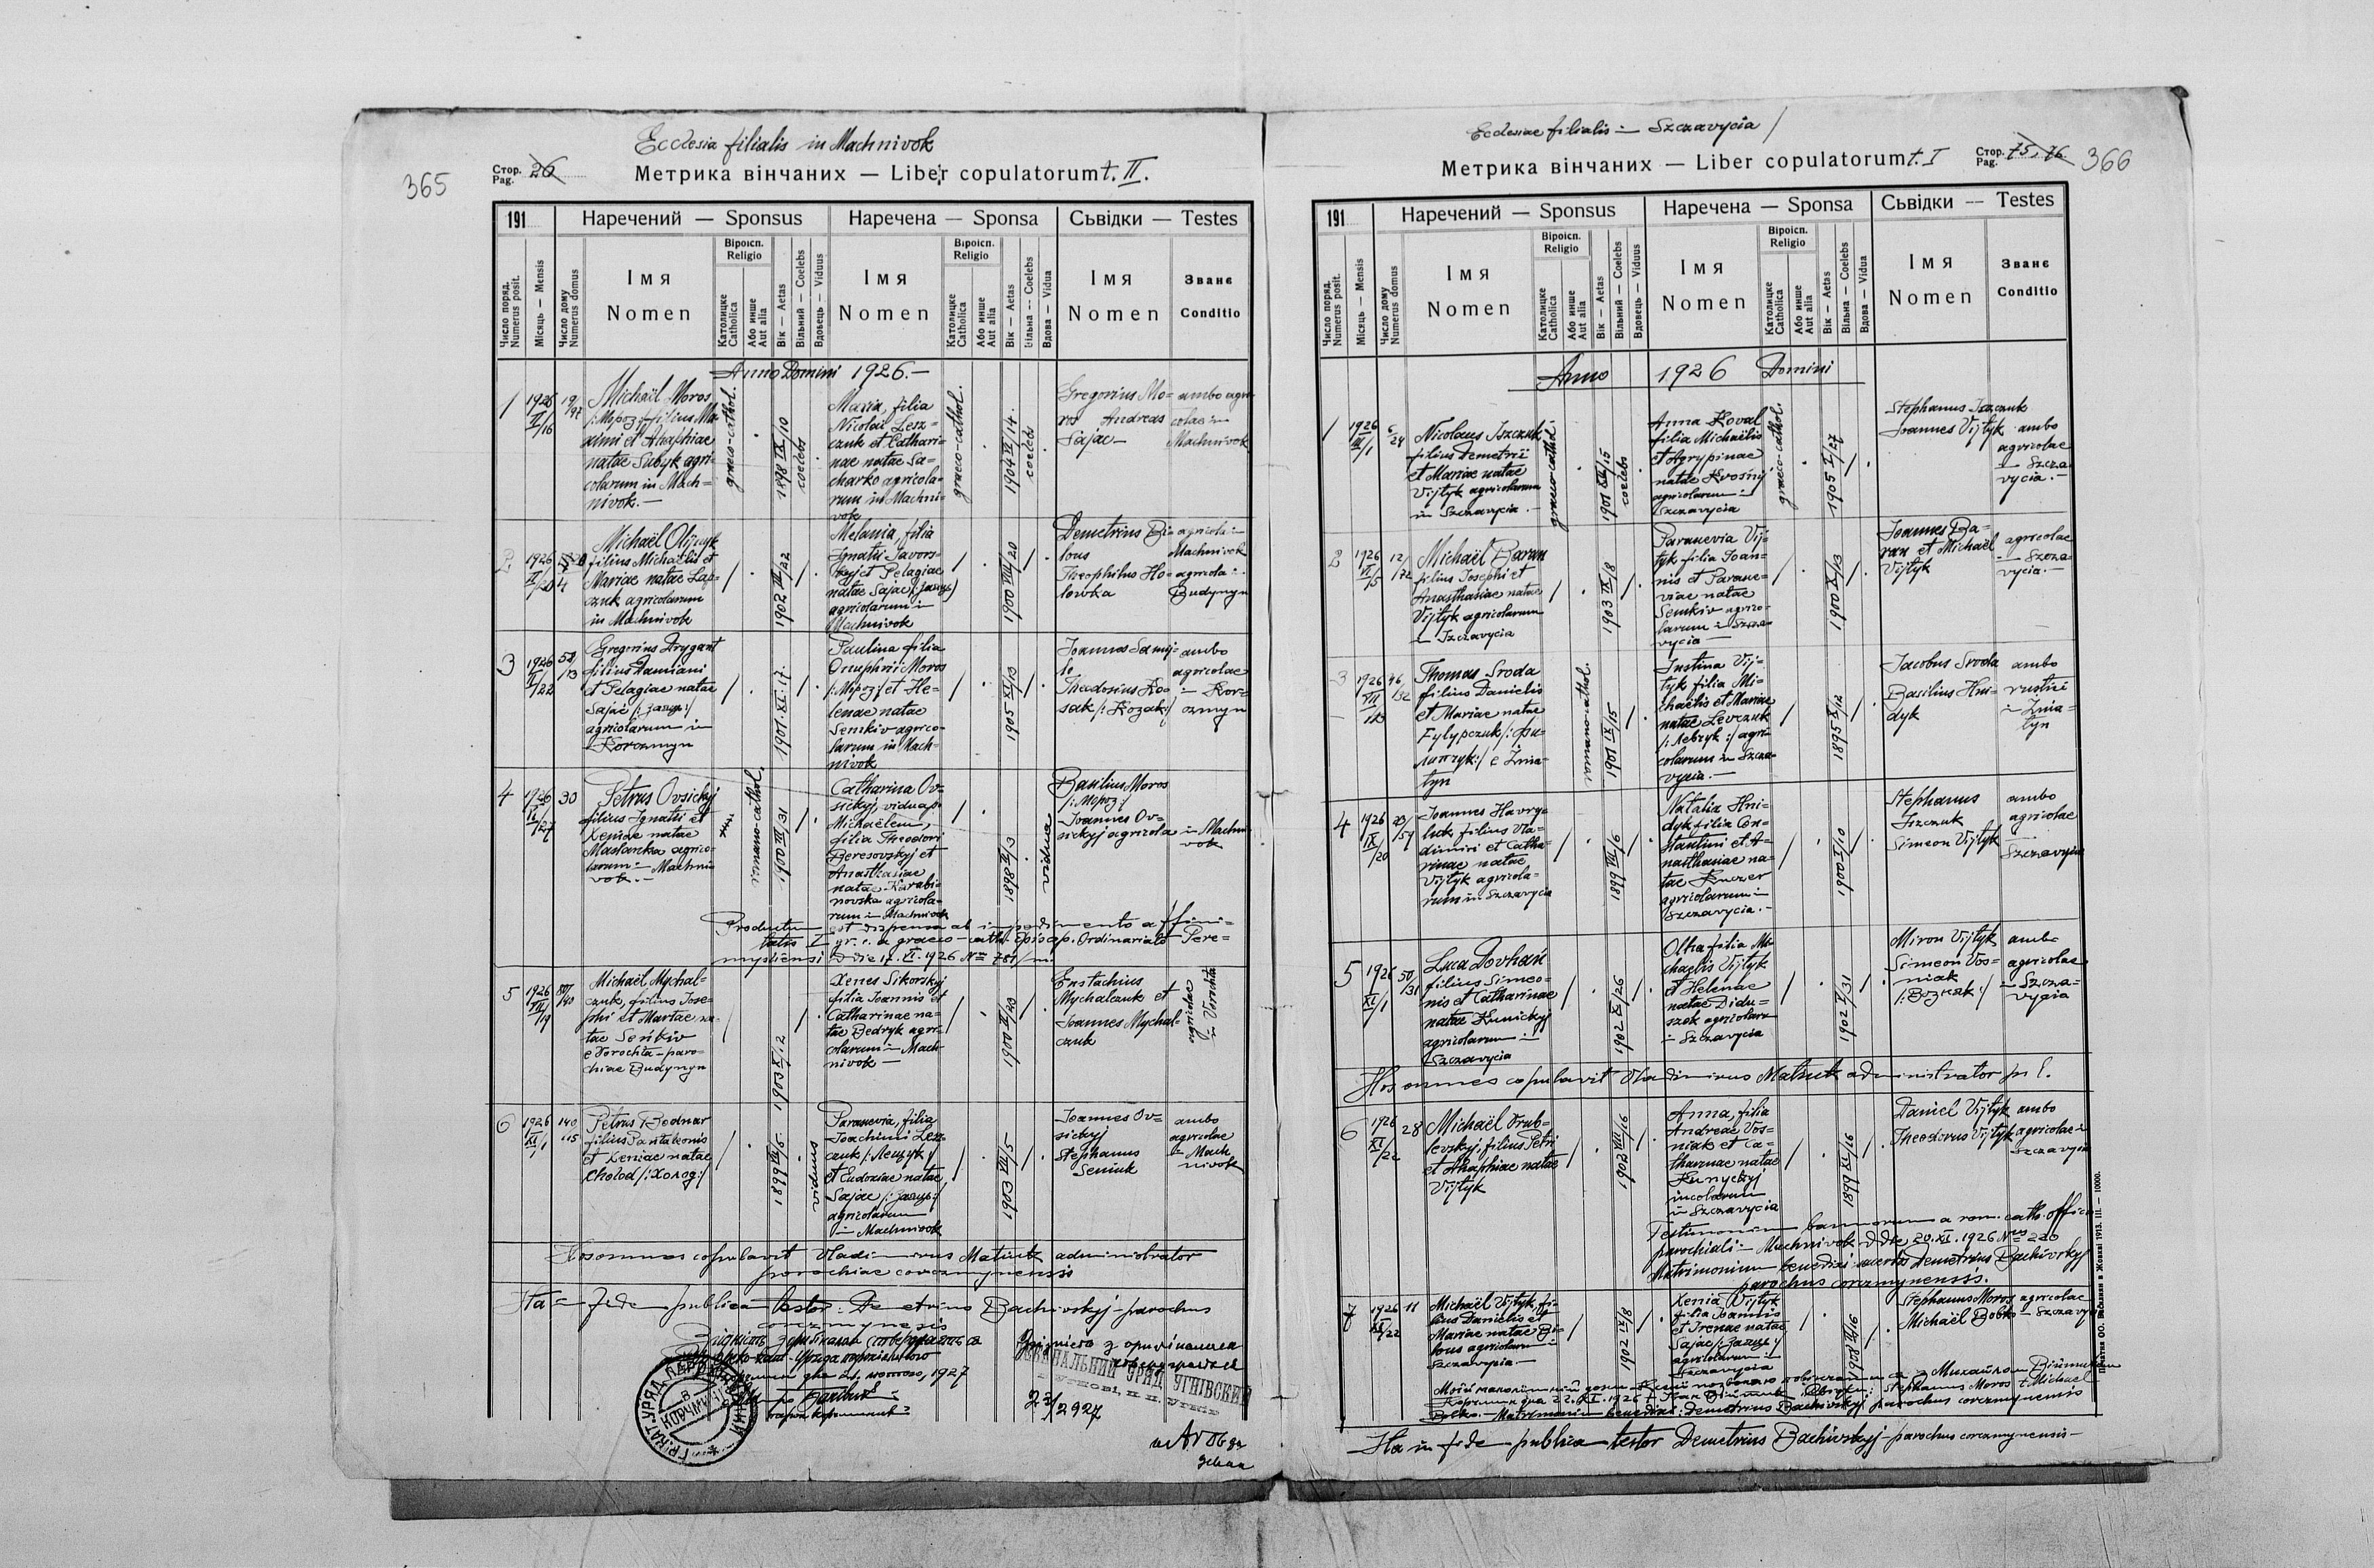 Ecclesia filialis in Machnivok
365
Стор. Pag. 26
Метрика вінчаних — Liber copulatorum t. II.
191
Наречений — Sponsus
Наречена — Sponsa
Сьвідки — Testes
Число поряд. Numerus posit.
Місяць — Mensis
Число дому Numerus domus
Імя
Nomen
Віроісп. Religio
Католицке Catholica
Або инше Aut alia
Вік — Aetas
Вільний — Coelebs
Вдовець — Viduus
Імя
Nomen
Віроісп. Religio
Католицке Catholica
Або инше Aut alia
Вік — Aetas
Вільна — Coelebs
Вдова — Vidua
Імя
Nomen
Званє
Conditio
Anno Domini 1926.—
1
1926 II/16
19/97
Michaël Moros
/:Мороз:/ filius Ma-
ximi et Ahaphiae
natae Subyk agri-
colarum in Mach-
nivok.—
graeco-cathol.
1898 IX/10
coelebs
Maria, filia
Nicolai Lesz-
czuk et Cathari-
nae natae Sa-
charko agricola-
rum in Machni-
vok
graeco-cathol.
1904 VI/14.
coelebs
Gregorius Mo-
ros Andreas
Sajac—
ambo agri-
colae in
Machnivok
2
1926 II/20
4
Michaël Olijnyk
filius Michaëlis et
Mariae natae Lap-
czuk agricolarum
in Machnivok
1902 III/22
Melania, filia
Ignatii Javors-
kyj et Pelagiae
natae Sajac /:Заяць:/
agricolarum in
Machnivok
1900 VIII/20
Demetrius Bi-
lous
Theophilus Ho-
lowka
agricola in
Machnivok
agricola in
Budynyn
3
1926 II/22
58/13
Gregorius Drygant
filius Damiani
et Pelagiae natae
Sajac /:Заяць:/
agricolarum in
Korczmyn
1901.XI.17.
Paulina filia
Onuphrii Moros
/:Мороз:/ et He-
lenae natae
Senkiv agrico-
larum in Mach-
nivok
1905 XI/13
Joannes Samij-
lo
Theodosius Ko-
sak /:Kozak:/
ambo
agricolae
in Kor-
czmyn
4
1926 VI/27
30
Petrus Ovsickyj
filius Ignatii et
Xeniae natae
Maslanka agrico-
larum in Machni-
vok.—
romano-cathol.
1900 VIII/31
Catharina Ov-
sickyj, vidua p.
Michaëlem,
filia Theodori
Beresovskyj et
Anasthasiae
natae Karabi-
novska agricola-
rum in Machnivok
1898 III/3
vidua
Basilius Moros
/:Мороз:/
Joannes Ov-
sickyj agricola in Machni-
vok
Producta est dispensa ab impedimento affini-
tatis I gr. c. a graeco-cath. Episcop. Ordinariatu Pere-
mysliensi d die 17.VI.1926
5
1926 VII/19
Michaël Mychal-
czuk, filius Jose-
phi et Martae na-
tae Seńkiv
e Vorochta—paro-
chiae Budynyn
1903 X/12
Xenes Sikorskyj
filia Joannis et
Catharinae na-
tae Bedryk agri-
colarum in Mach-
nivok—
Eustachius
Mychalczuk et
Joannes Mychal-
czuk
agricolae
in Vorochta
6
1926 XI/1
140
115
Petrus Bednar
filius Pantaleonis
et Xeniae natae
Cholod /:Холод:/
viduus
Parasevia, filia
Joachimi Lesz-
czuk /:Лещук:/
et Eudoxiae natae
Sajac /:Заяць:/
agricolarum
in Machnivok
1903 VII/5
Joannes Ov-
sickyj
Stephanus
Seniuk
ambo
agricolae
in Mach-
nivok
Hos omnes copulavit Vladimirus Matiuk administrator
parochiae corczmynensis
Ita in fidem publicam testor: Demetrius Bachivskyj—parochus
corczmynensis
1927
Згідність з оригіналом
стверджається
ДЕКАНАЛЬНИЙ УРЯД УГНІВСКИЙ
23/2 927
Ecclesiae filialis in Szczavycia
Метрика вінчаних — Liber copulatorum t. I
Стор. Pag. 75, 76
366
191
Наречений — Sponsus
Наречена — Sponsa
Сьвідки — Testes
Число поряд. Numerus posit.
Місяць — Mensis
Число дому Numerus domus
Імя
Nomen
Віроісп. Religio
Католицке Catholica
Або инше Aut alia
Вік — Aetas
Вільний — Coelebs
Вдовець — Viduus
Імя
Nomen
Віроісп. Religio
Католицке Catholica
Або инше Aut alia
Вік — Aetas
Вільна — Coelebs
Вдова — Vidua
Імя
Nomen
Званє
Conditio
Anno 1926 Domini
1
1926 III/1
6/24
Nicolaus Iszczuk
filius Demetrii
et Mariae natae
Vijtyk agricolarum
in Szczavycia.—
graeco-cathol.
1901 XII/15
coelebs
Anna Koval
filia Michaëlis
et Agrypinae
natae Kvosnyj
agricolarum in
Szczavycia
graeco-cathol.
1905 I/27
Stephanus Iszczuk
Joannes Vijtyk
ambo
agricolae
in Szcza-
vycia.—
2
1926 VI/5
12/72
Michaël Baran
filius Josephi et
Anasthasiae natae
Vijtyk agricolarum
in Szczavycia
1903 IX/8
Parasevia Vij-
tyk filia Joan-
nis et Parasce-
viae natae
Senkiv agrico-
larum in Szcza-
vycia—
1900 XI/13
Joannes Ba-
ran et Michaël
Vijtyk
agricolae
in Szcza-
vycia.—
3
1926 VII/
46/32
Thomas Sroda
filius Danielis
et Mariae natae
Fylypczuk /:Фи-
липчук:/ e Żnia-
tyn
romano-cathol.
1901 IX/15
Justina Vij-
tyk filia Mi-
chaëlis et Mariae
natae Levczuk
/:Левчук:/ agri-
colarum in Szcza-
vycia.—
1895 X/12
Jacobus Sroda
Basilius Hni-
dyk
ambo
rustici
in Żnia-
tyn
4
1926 IX/20
Joannes Havry-
luk filius Vla-
dimiri et Catha-
rinae natae
Vijtyk agricola-
rum in Szczavycia
1899 VIII/6
Natalia Hni-
dyk filia Con-
stantini et A-
nasthasiae na-
tae Kuczer
agricolarum in
Szczavycia.—
1900 I/10
Stephanus
Iszczuk
Simeon Vijtyk
ambo
agricolae
in
Szczavycia
5
1926 XI/1
50/31
Luca Dovhań
filius Simeo-
nis et Catharinae
natae Kunickyj
agricolarum in
Szczavycia
1902 XI/26
Olha filia Mi-
chaëlis Vijtyk
et Helenae
natae Didu-
szok agricolarum
in Szczavycia
1902 V/31
Miron Vijtyk
Simeon Vos-
niak
/:Возняк:/
ambo
agricolae
in Szcza-
vycia
Hos omnes copulavit Vladimirus Matiuk administrator
6
1926 XI/22
28
Michaël Vrub-
levskyj, filius Petri
et Ahaphiae natae
Vijtyk
1902 VIII/16
Anna, filia
Andreae Vos-
niak et Ca-
tharinae natae
Kunyckyj
incolarum
in Szczavycia
1899 XI/16
Daniel Vijtyk
Theodorus Vijtyk
ambo
agricolae in
Szczavycia
Testimonium bannorum a rom. cath. officio
parochiali in Machnivok d dto 20.XI.1926 Nro 220
Matrimonium benedixi sacerdos Demetrius Bachivskyj
parochus corczmynensis.
7
1926 XI/22
11
Michaël Vijtyk, fi-
lius Danielis et
Mariae natae Bi-
lous agricolarum in
Szczavycia—
1902 IV/8
Xenia Vijtyk
filia Joannis
et Irenae natae
Sajac /:Заяць:/
agricolarum in
Szczavycia
Stephanus Moros
Michaël Bobko
agricolae
in Szczavycia
Matrimonium benedixi: Demetrius Bachivskyj parochus corczmynensis
Ita in fidem publicam testor Demetrius Bachivskyj—parochus corczmynensis—
Печатня ОО. Василиян в Жовкві 1913. III. — 10000.